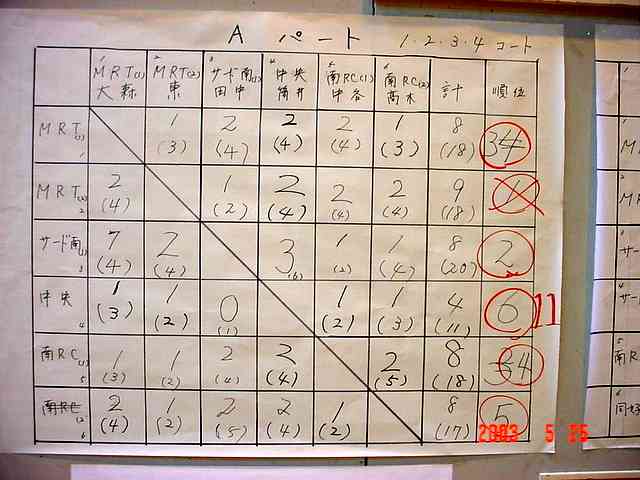 A パート 1.2.3.4 コート
MRT(1) 大森 MRT(2) 東 サード南(1) 田中 中央 筒井 南RC(1) 中谷 南RC(2) 高木 計 順位
MRT(1) 1 1 (3) 2 (4) 2 (4) 2 (4) 1 (3) 8 (18) 3
MRT(2) 2 2 (4) 1 (2) 2 (4) 2 (4) 2 (4) 9 (18) 1
サード南(1) 3 7 (4) 2 (4) 3 (6) 1 (2) 1 (4) 8 (20) 2
中央 4 1 (3) 1 (2) 0 (1) 1 (2) 1 (3) 4 (11) 6 11
南RC(1) 5 1 (3) 1 (2) 2 (4) 2 (4) 2 (5) 8 (18) 4
南RC(2) 6 2 (4) 1 (2) 2 (5) 2 (4) 1 (2) 8 (17) 5
2003 5 25